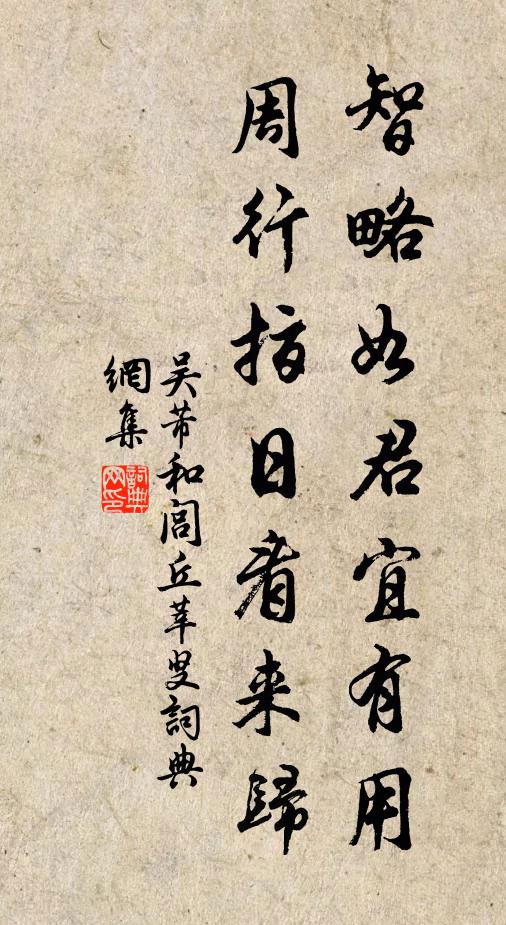 智略如君宜有用
周行指日看来歸
吴芾和閭丘莘叟詞典
網集
詞典
网印